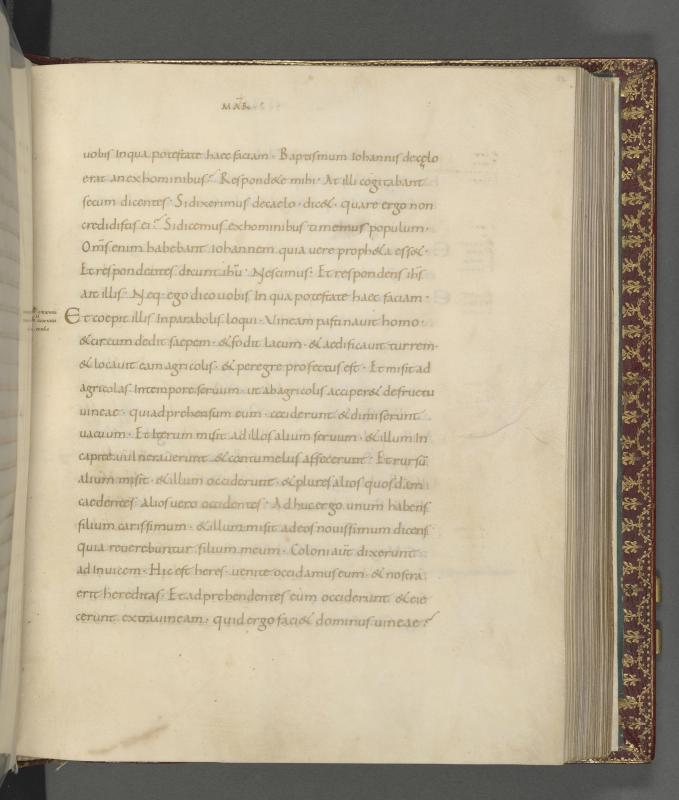 MAR
uobis In qua potestate haec faciam · Baptismum Iohannis de cęlo
erat an ex hominibus? Respondete mihi · At illi cogitabant
secum dicentes · Si dixerimus de caelo · dicet · quare ergo non
credidistis ei? Si dicemus ex hominibus timemus populum ·
Om̅s enim habebant Iohannem quia uere propheta esset ·
Et respondentes dicunt ihu̅ · Nescimus · Et respondens ih̅s
ait illis · Neq· ego dico uobis In qua potestate haec faciam ·
Et coepit illis In parabolis loqui · Vineam pastinauit homo ·
& circumdedit saepem · & fodit lacum · & aedificauit turrem ·
& locauit eam agricolis · & peregre profectus est · Et misit ad
agricolas In tempore seruum ut ab agricolis acciperet de fructu
uineae · qui adprehensum eum · ceciderunt & dimiserunt
uacuum · Et Iterum misit ad illos alium seruum · & illum In
capite uulnerauerunt & contumeliis affecerunt · Et rursu̅
alium misit · & illum occiderunt · & plures alios quosdam
caedentes Alios uero occidentes · Adhuc ergo unum habens
filium carissimum · & illum misit ad eos nouissimum dicens
quia reuerebuntur filium meum · Coloni aut̅ dixerunt
ad Inuicem · Hic est heres · uenite occidamus eum · & nostra
erit hereditas · Et adprehendentes eum occiderunt & eie
cerunt extra uineam · quid ergo faciet dominus uineae?